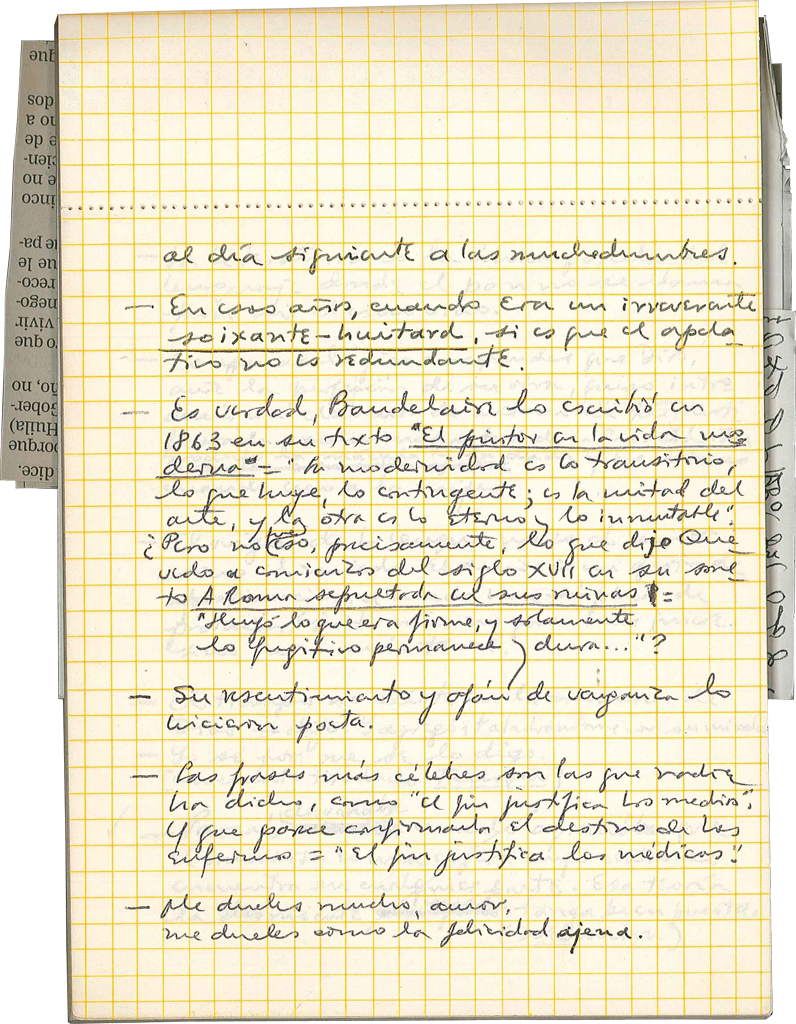 al día siguiente a las muchedumbres.
— En esos años, cuando era un irreverente
soixante-huitard, si es que el apela-
tivo no es redundante.
— Es verdad, Baudelaire lo escribió en
1863 en su texto "El pintor en la vida mo-
derna" = "La modernidad es lo transitorio,
lo que huye, lo contingente; es la mitad del
arte, y la otra es lo eterno y lo inmutable".
¿Pero no fue eso, precisamente, lo que dijo Que-
vedo a comienzos del siglo XVII en su sone-
to A Roma sepultada en sus ruinas =
"Huyó lo que era firme, y solamente
lo fugitivo permanece y dura..."?
— Su resentimiento y afán de venganza lo
hicieron poeta.
— Las frases más célebres son las que nadie
ha dicho, como "el fin justifica los medios".
Y que parece confirmarla el destino de los
enfermos = "El fin justifica los médicos".
— Me dueles mucho, amor,
me dueles como la felicidad ajena.
que
dos
no a
e de
cien-
e no
inco
ue pa-
ue le
reco-
nego-
vivir
o que
ño, no
Gober-
(Huila)
porque
dice.